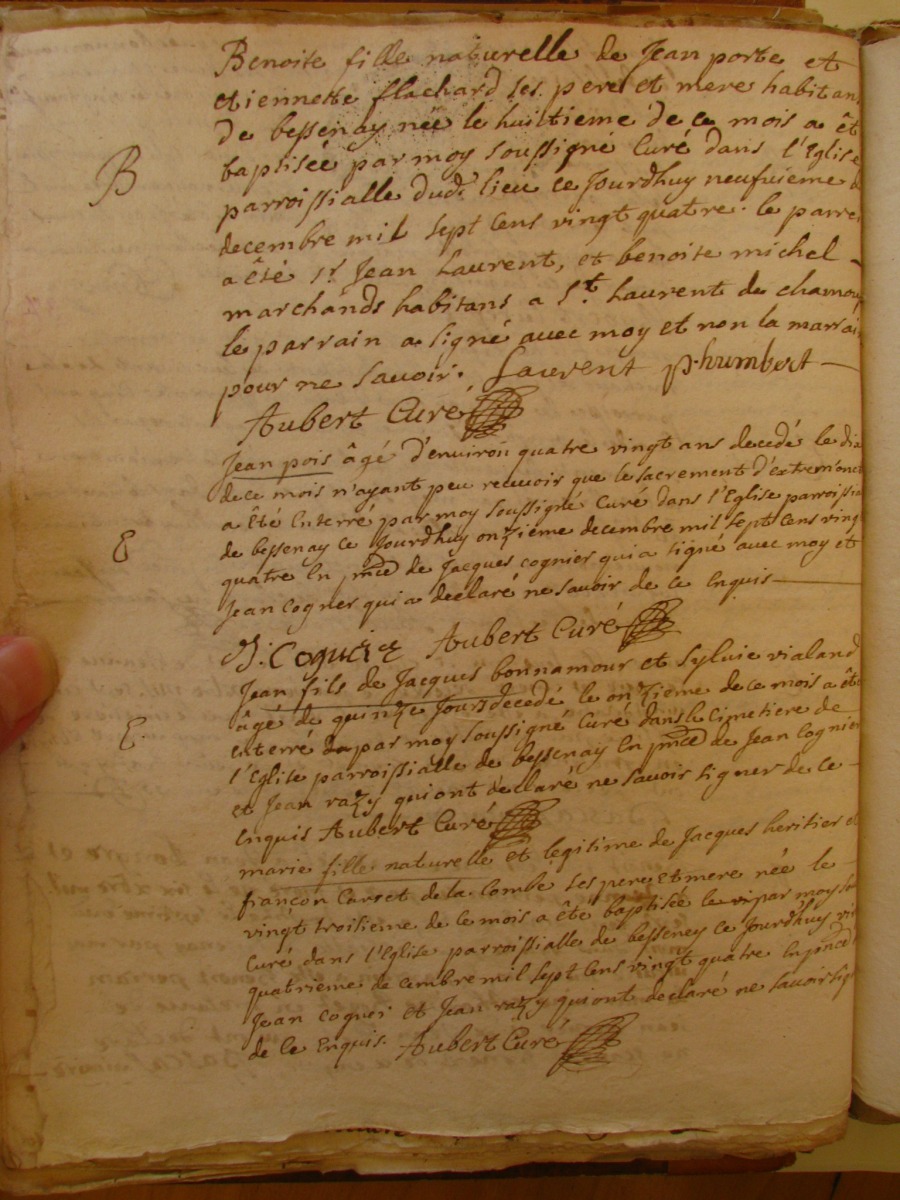 Benoite fille naturelle de Jean porte et
etiennette flachard ses pere et mere habitans
de bessenay née le huitieme de ce mois a êt
B
baptisée par moy soussigné Curé dans l'Eglise
parroissialle dud.t lieu ce Jourdhuy neufuieme d
decembre mil sept cens vingt quatre. le parrei
a êté s.r Jean Laurent, et benoite michel -
marchands habitans a S.t Laurent de chamou
le parrain a signé avec moy et non la marrai
pour ne savoir. Laurent p.humbert
Aubert Curé
Jean pois âgé d'environ quatre vingt ans decedé le dix
de ce mois n'ayant peu recevoir que le sacrement d'extrem'onc
a êté Enterré par moy soussigné Curé dans l'Eglise parroissia
E
de bessenay ce Jourdhuy onzieme decembre mil sept cens ving
quatre En pnce de Jacques cognier qui a signé avec moy et
Jean Cogner qui a declaré ne savoir de ce Enquis
J. Coguiez Aubert Curé
Jean fils de Jacques bonnamour et sylvie vialand
âgé de quinze Jours decedé le onzieme de ce mois a êté
E.
Enterré par moy soussigné Curé dans le Cimetiere de
l'Eglise parroissialle de bessenay En pnce de Jean Cognier
et Jean razy qui ont declaré ne savoir signer de ce
Enquis Aubert Curé
marie fille naturelle et legitime de Jacques heritier e
françon Carret de la Combe ses pere et mere née le
vingt troisieme de ce mois a êté baptisée par moy sou
Curé dans l'Eglise parroissialle de bessenay ce Jourdhuy vin
quatrieme decembre mil sept cens vingt quatre En pnce d
Jean Cogner et Jean razy qui ont declaré ne savoir sign
de ce Enquis. Aubert Curé